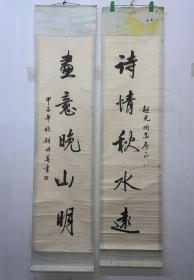 诗情秋水远
超元同志存正
画意晚山明
甲子年秋
书